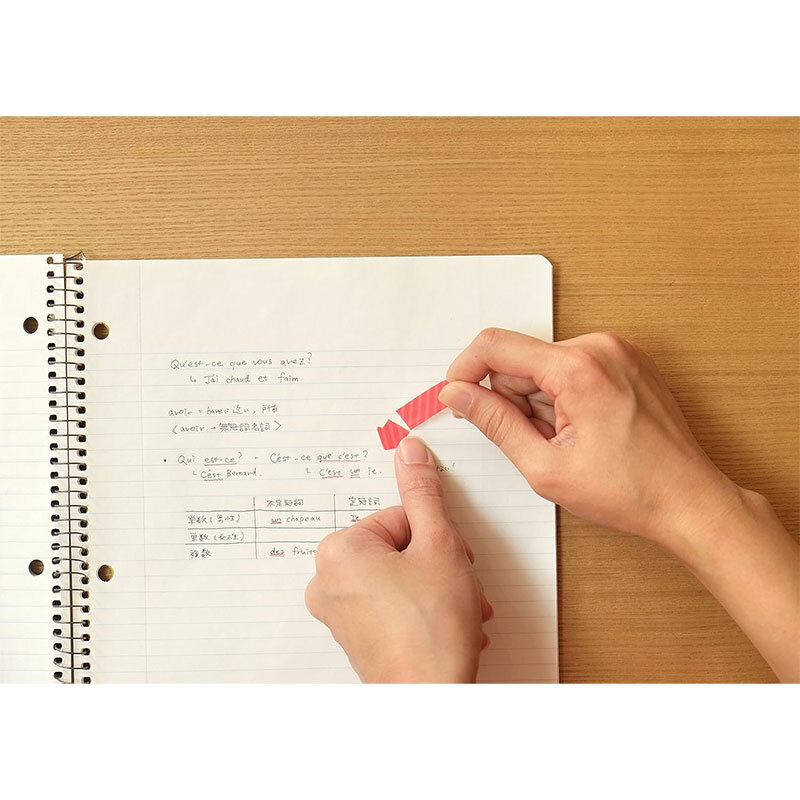 Qu'est-ce que vous avez?
↳ J'ai chaud et faim
avoir = haveに近い, 所有
〈avoir + 無冠詞名詞〉
• Qui est-ce? - C'est-ce que c'est?
└ C'est Bernard. └ C'est un je. !
不定冠詞 定冠詞
単数(男性) un chapeau
単数(女性)
複数 des fruits